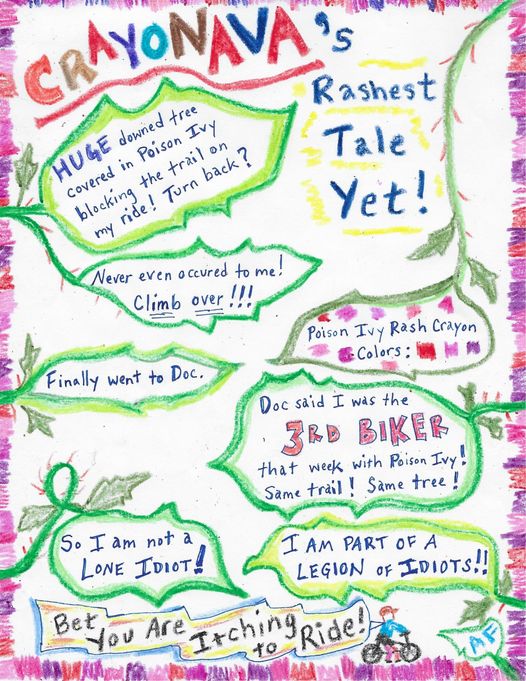 CRAYONAVA's
Rashest
Tale
Yet!
HUGE downed tree
covered in Poison Ivy
blocking the trail on
my ride! Turn back?
Never even occured to me!
Climb over!!!
Poison Ivy Rash Crayon
Colors:
Finally went to Doc.
Doc said I was the
3RD BIKER
that week with Poison Ivy!
Same trail! Same tree!
So I am not a
LONE IDIOT!
I AM PART OF A
LEGION OF IDIOTS!!
Bet You Are Itching to Ride!
AF